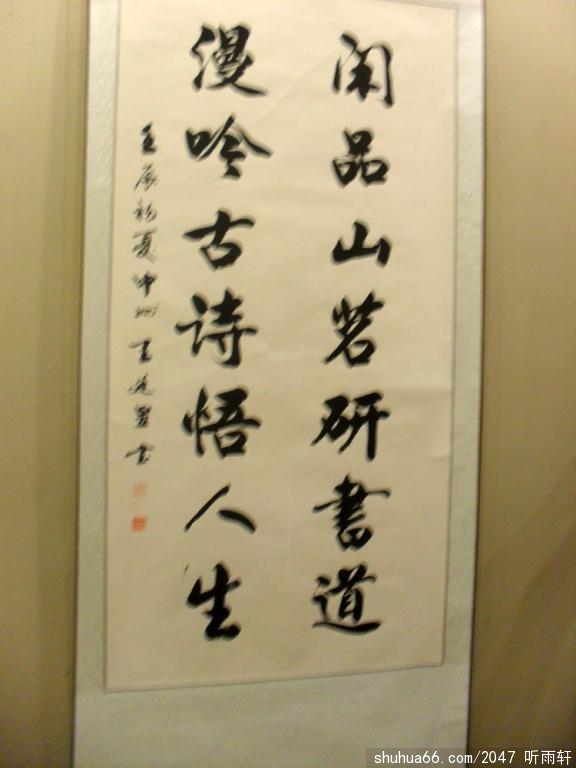 闲品山茗研书道
漫吟古诗悟人生
壬辰初夏中州 书
shuhua66.com/2047 听雨轩